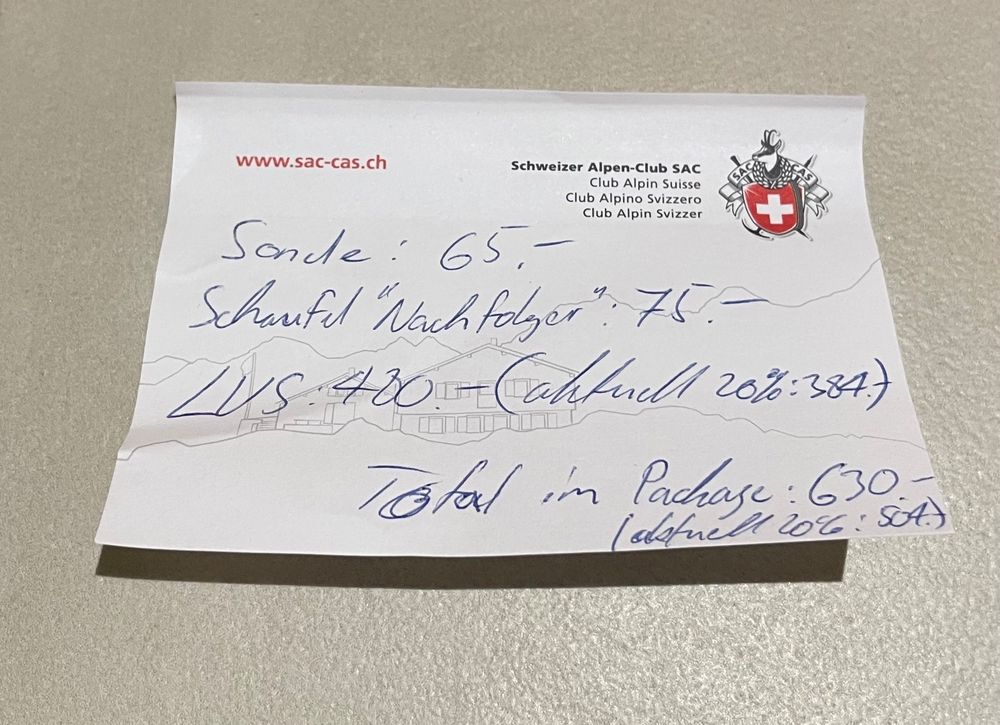 www.sac-cas.ch
Schweizer Alpen-Club SAC
Club Alpin Suisse
Club Alpino Svizzero
Club Alpin Svizzer
SAC CAS
Sonde: 65.-
Schaufel "Nachfolger": 75.-
LVS: 480.- (aktuell 20%: 384.-)
Total im Package: 630.-
(aktuell 20%: 504.-)